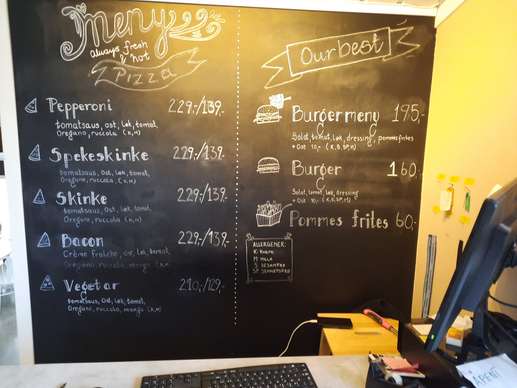 Meny
always fresh
& hot
Pizza
Pepperoni 229,-/139,-
tomatsaus, ost, løk, tomat,
Oregano, ruccola (H,M)
Spekeskinke 229,-/139,-
tomatsaus, Ost, løk, tomat,
Oregano, ruccola (H,M)
Skinke 229,-/139,-
tomatsaus, ost, løk, tomat,
Oregano, ruccola (H,M)
Bacon 229,-/139,-
Crème fraiche, ost, løk, tomat,
Oregano, ruccola, mango (H,M)
Vegetar 210,-/129,-
tomatsaus, ost, løk, tomat,
Oregano, ruccola, mango (H,M)
Our best
Burgermeny 195,-
Salat, tomat, løk, dressing, pommes frites
+ Ost 10,-
Burger 160,-
Salat, tomat, løk, dressing
+ Ost 10,-
Pommes frites 60,-
ALLERGENER:
M MELK
S SESAMFRØ
SP SENNEPSFRØ
ÅPENT